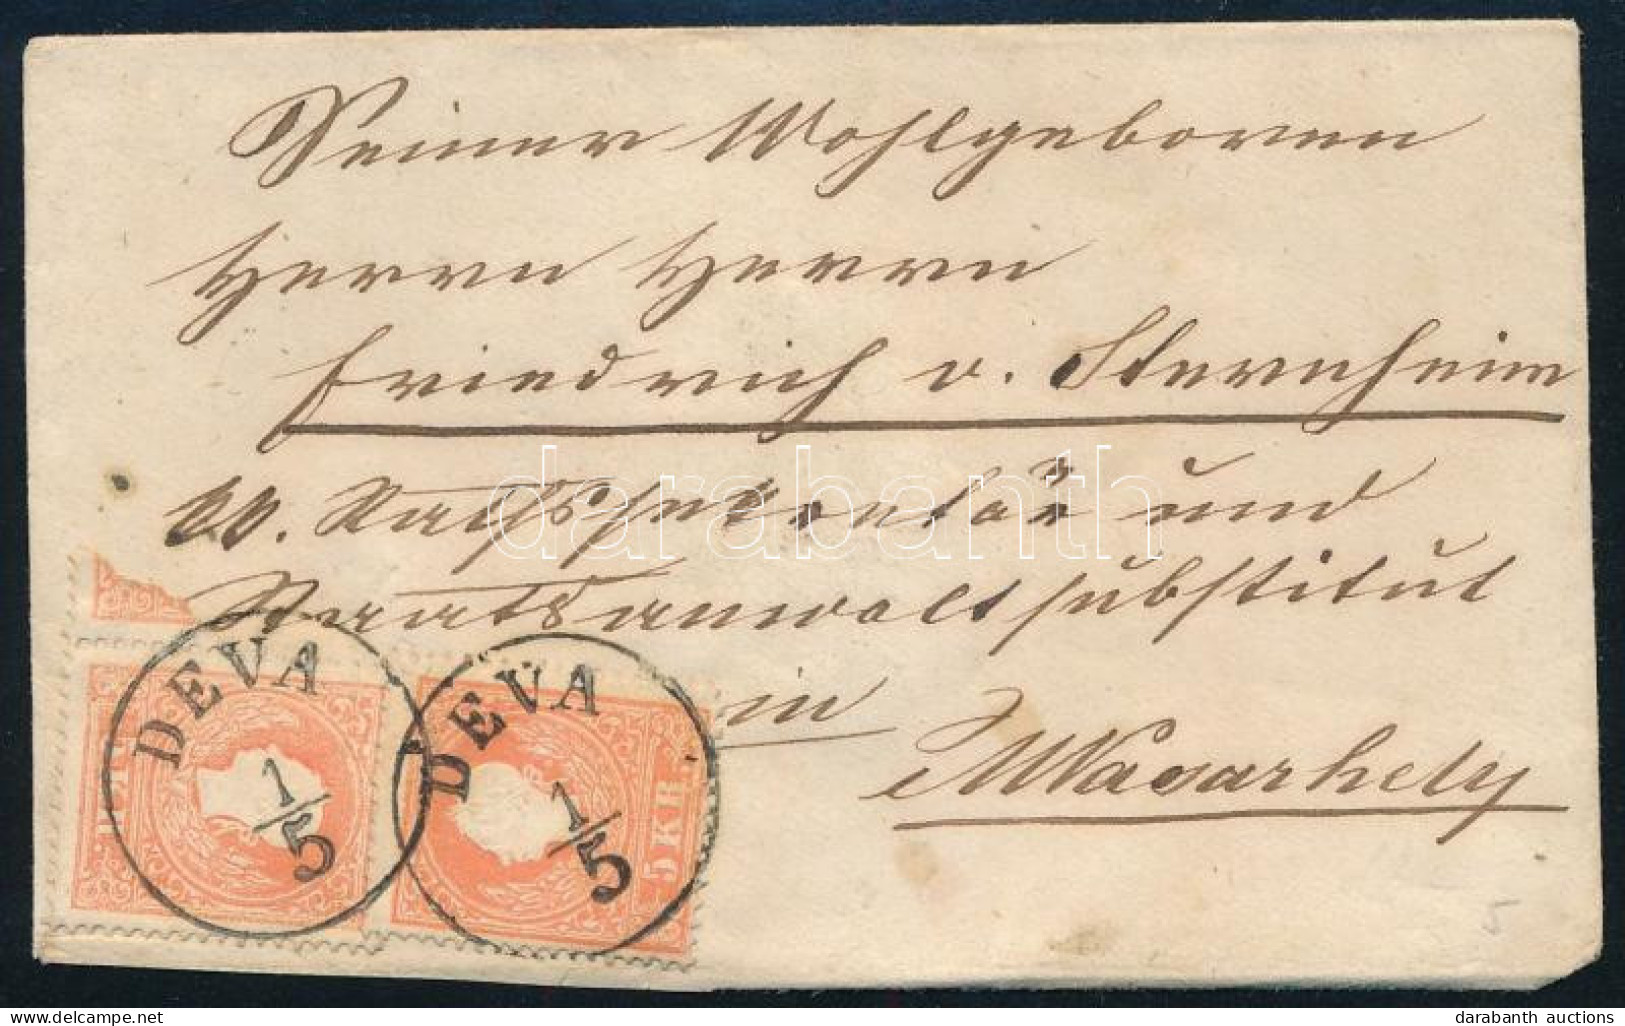 Seiner Wohlgeboren
Herrn Herrn
Friedrich v. Sternheim
kk. Rathssekretär und
Staatsanwaltsubstitut
in
MVasarhely
DEVA
1/5
DEVA
1/5
5 KR
darabanth
delcampe.net
darabanth auctions